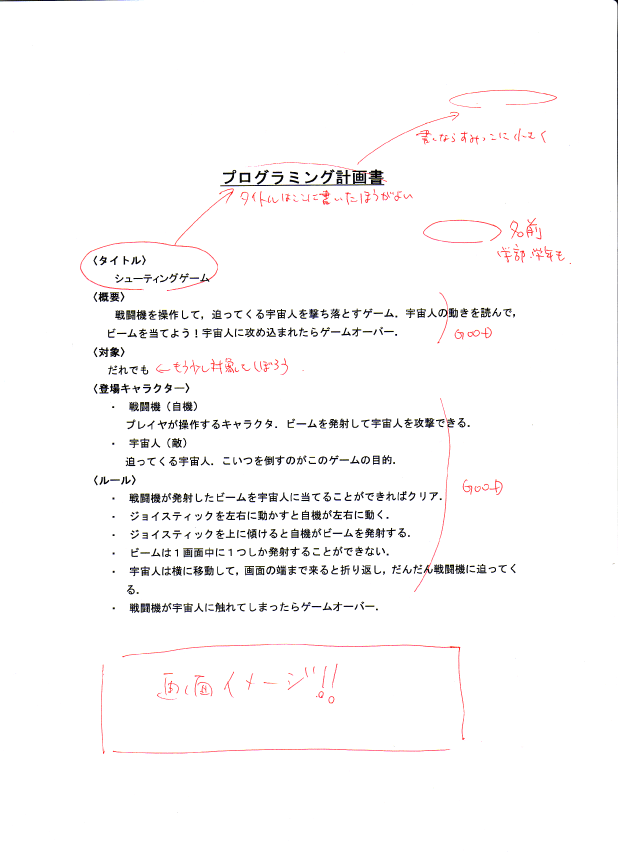 書くならすみっこに小さく
プログラミング計画書
タイトルはここに書いたほうがよい
名前
学部・学年も
〈タイトル〉
シューティングゲーム
〈概要〉
戦闘機を操作して，迫ってくる宇宙人を撃ち落とすゲーム．宇宙人の動きを読んで，
ビームを当てよう！宇宙人に攻め込まれたらゲームオーバー．
GOOD
〈対象〉
だれでも ←もう少し対象をしぼろう．
〈登場キャラクター〉
・ 戦闘機（自機）
プレイヤが操作するキャラクタ．ビームを発射して宇宙人を攻撃できる．
・ 宇宙人（敵）
迫ってくる宇宙人．こいつを倒すのがこのゲームの目的．
〈ルール〉
GOOD
・ 戦闘機が発射したビームを宇宙人に当てることができればクリア．
・ ジョイスティックを左右に動かすと自機が左右に動く．
・ ジョイスティックを上に傾けると自機がビームを発射する．
・ ビームは１画面中に１つしか発射することができない．
・ 宇宙人は横に移動して，画面の端まで来ると折り返し，だんだん戦闘機に迫ってく
る．
・ 戦闘機が宇宙人に触れてしまったらゲームオーバー．
画面イメージ!!